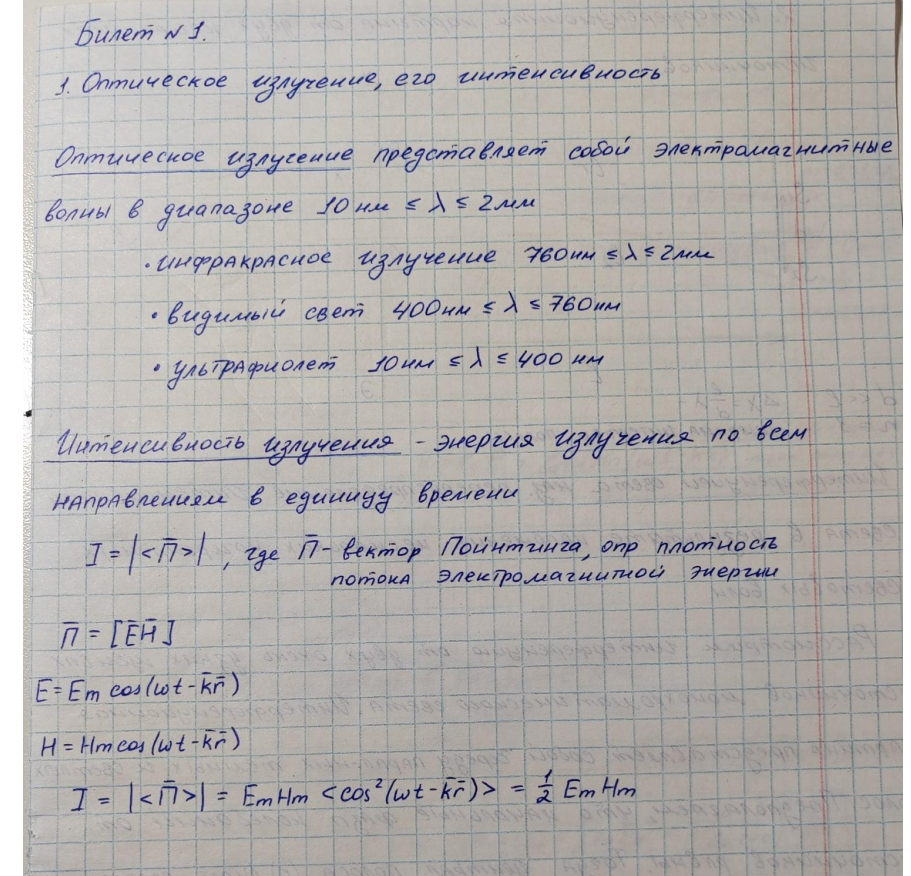 Билет №1.
1. Оптическое излучение, его интенсивность
Оптическое излучение представляет собой электромагнитные
волны в диапазоне 10 нм ≤ λ ≤ 2мм
• инфракрасное излучение 760нм ≤ λ ≤ 2мм
• видимый свет 400нм ≤ λ ≤ 760нм
• ультрафиолет 10нм ≤ λ ≤ 400 нм
Интенсивность излучения - энергия излучения по всем
направлениям в единицу времени
I = |<П̄>| , где П̄ - вектор Пойнтинга, опр плотность
потока электромагнитной энергии
П̄ = [ĒH̄]
E = Em cos(ωt - k̄r̄)
H = Hm cos(ωt - k̄r̄)
I = |<П̄>| = EmHm <cos²(ωt - k̄r̄)> = 1/2 EmHm